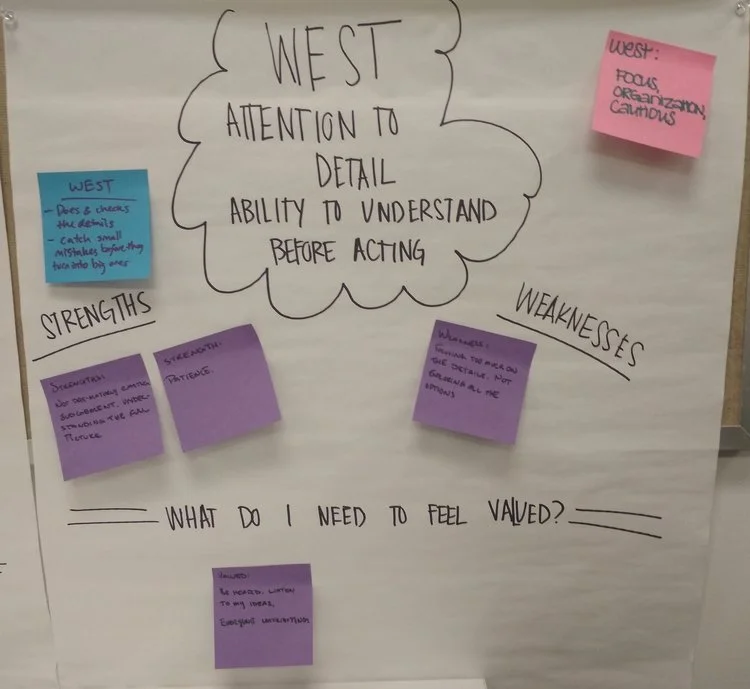 WEST
ATTENTION TO
DETAIL
ABILITY TO UNDERSTAND
BEFORE ACTING
West:
FOCUS,
ORGANIZATION,
CAUTIOUS
WEST
- Does & checks
the details
- catch small
mistakes before they
turn into big ones
STRENGTHS
WEAKNESSES
STRENGTH:
NOT PREMATURELY
JUDGEMENT, UNDER-
STANDING THE FULL
PICTURE
STRENGTH:
PATIENCE.
WEAKNESS:
THE DETAILS. NOT
ALL THE
OPTIONS
WHAT DO I NEED TO FEEL VALUED?
VALUED:
BE HEARD. LISTEN
TO MY IDEAS,
EVERYONE